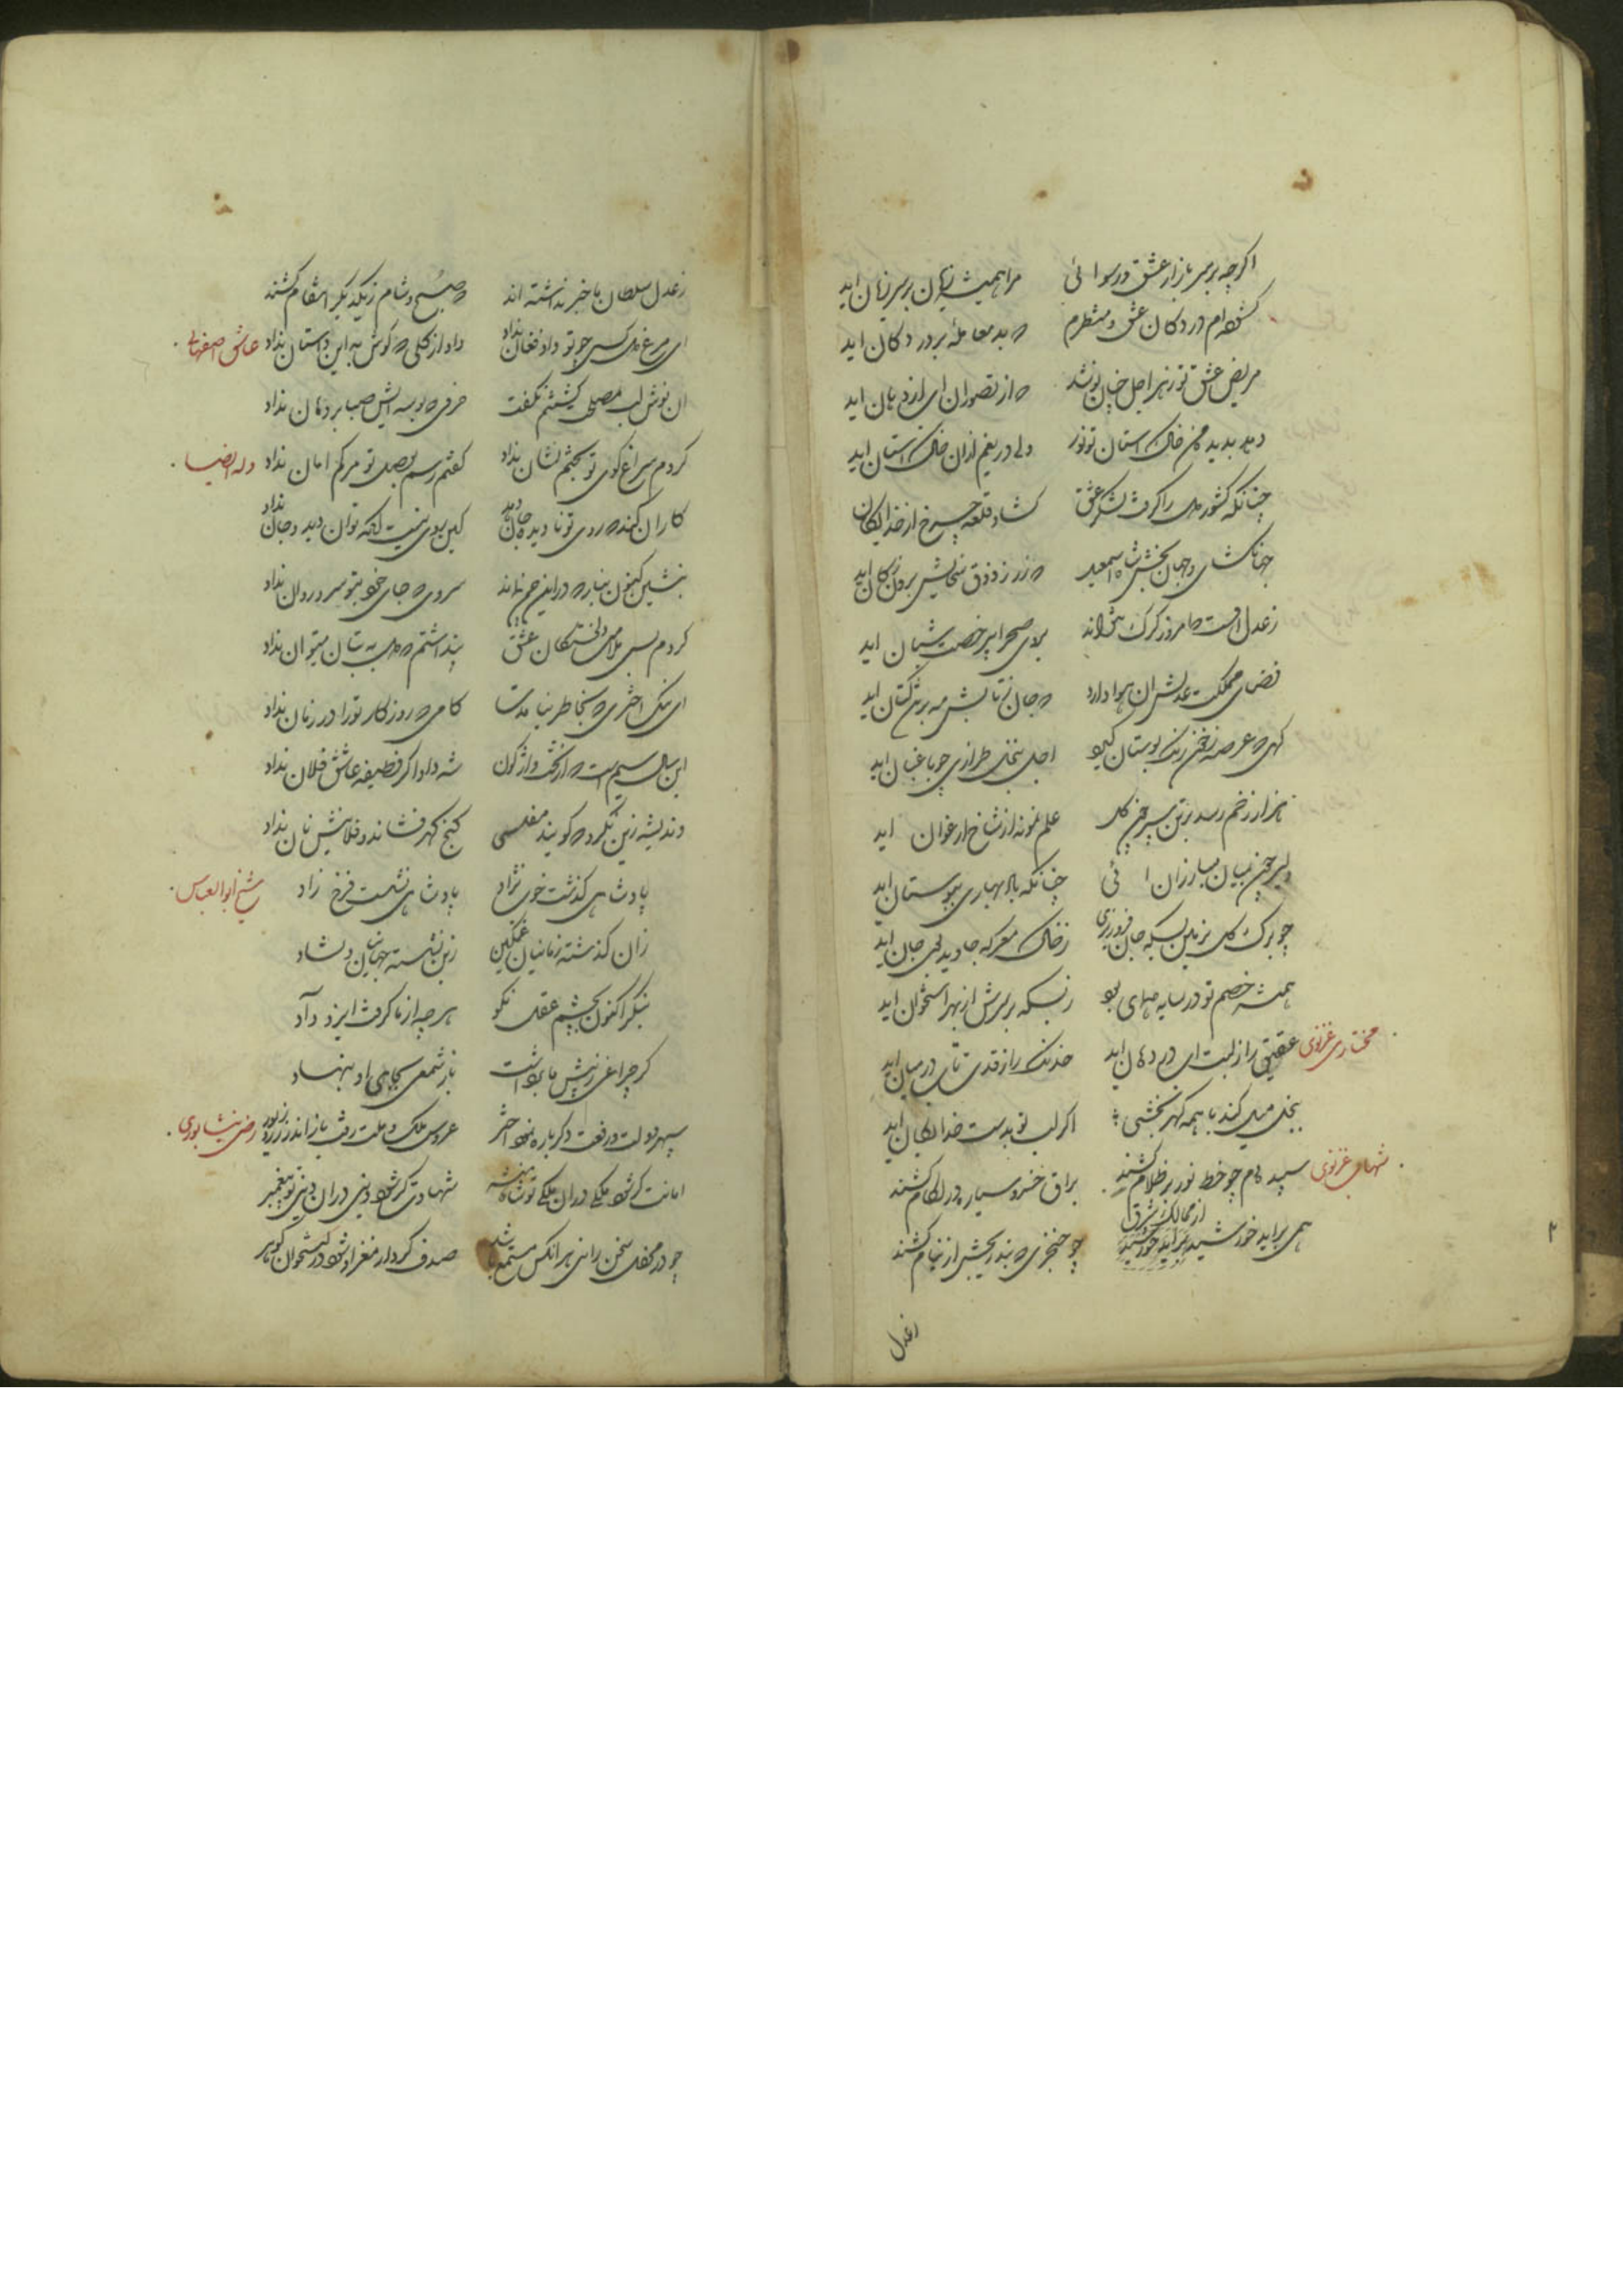 اکرچه بر سر بازار عشق و رسوائی مرا همیشه زیان بر سر زیان اید
کشوده ام در دکان عشق و منتظرم که بد معامله بر در دکان اید
مریض عشق تو زهر اجل چنان نوشد که از تصور ان
دهد بدیده من خاک استان تو نور ولی دریغم از ان خاک استان اید
چنانکه کشور دل را کرفت لشکر عشق کشاد قلعه چرخ از خدایکان
جهانکشای و جهان بخش شاه اسمعیل که زر ز ذوق سخایش برون ز کان اید
ز عدل اوست که امروز کرک نتواند بروی صحرا بیرخصت شبان اید
فضای مملکت عدلش ان هوا دارد که جان ز تابش مه بر تن کتان اید
کهی که عرصه ز خون رنک بوستان کیرد اجل بنخل طرازی چو باغبان اید
هزار زخم رسد بر تن سپر چون کل علم نمونه از شاخ ارغوان اید
دلیر چون بمیان مبارزان ائی چنانکه باد بهاری ببوستان اید
چو برک کل بزمین بسکه جان فرو ریزی ز خاک معرکه جاوید بوی جان اید
همیشه خصم تو در سایه همای بود ز بسکه بر سرش از بهر استخوان اید
مختاری غزنوی عقیقی را ز لبت ای در دهان اید خدنک را ز قدی تاب در میان اید
بخل میل کند با همه کهر بخشی اکر لب تو بدست خدایکان اید
شهاب غزنوی سپیده دم چو خط نور بر ظلام کشند براق خسرو سیاره در لکام کشند
همی براید خورشید از ممالک شرق چو خنجری که بتدریجش از نیام کشند
ز عدل
ز عدل سلطان با خبر نداشته اند که صبح و شام ز یکدیکر انتقام کشند
ای مرغ دل کسی چو تو داد فغان نداد داد از کلی که کوش به این داستان نداد عاشق اصفهانی
ان نوش لب بمصلحت کشتنم نکفت حرفی که بوسه ایش صبا بر دهان نداد
کردم سراغ کوی تو بختم نشان نداد کفتم رسم بوصل تو مرکم امان نداد وله ایضا
کاران کند که روی تو نادیده جان دهد کین روی نیست انکه توان دید و جان نداد
بنشین کنون بناز که در این چمن نماند سروی که جای خود بتو سرو روان نداد
کردم بسی ملامت دلخستکان عشق پنداشتم که دل به بتان میتوان نداد
ای نیک اختری که بخاطر نیامدت کامی که روزکار تو را در زمان نداد
این سال سیم است که از بخت واژکون شه داد اکر وظیفه عاشق فلان نداد
وندیشه زین نکرد که کویند مفلسی کنج کهر فشاند و فلانیش نان نداد
پادشاهی کذشت خوب نژاد پادشاهی نشست فرخ زاد شیخ ابوالعباس
زان کذشته زمانیان غمکین زین نشسته جهانیان دلشاد
بنکر اکنون بچشم عقل نکو هر چه از ما کرفت ایزد داد
کر چراغی ز پیش ما برداشت باز شمعی بجای او بنهاد
سپهر دولت و رفعت دکر باره نمود اختر عروس ملک و ملت رفت باز اندر زر و زیور رضی نیشابوری
امانت کر شود ملکی در ان ملکی تو شاهنشه شهادت کر شود دینی در ان دینی تو پیغمبر
چو در محفل سخن رانی هر انکس مستمع باشد صدف کردار مغز او شود در استخوان کوهر